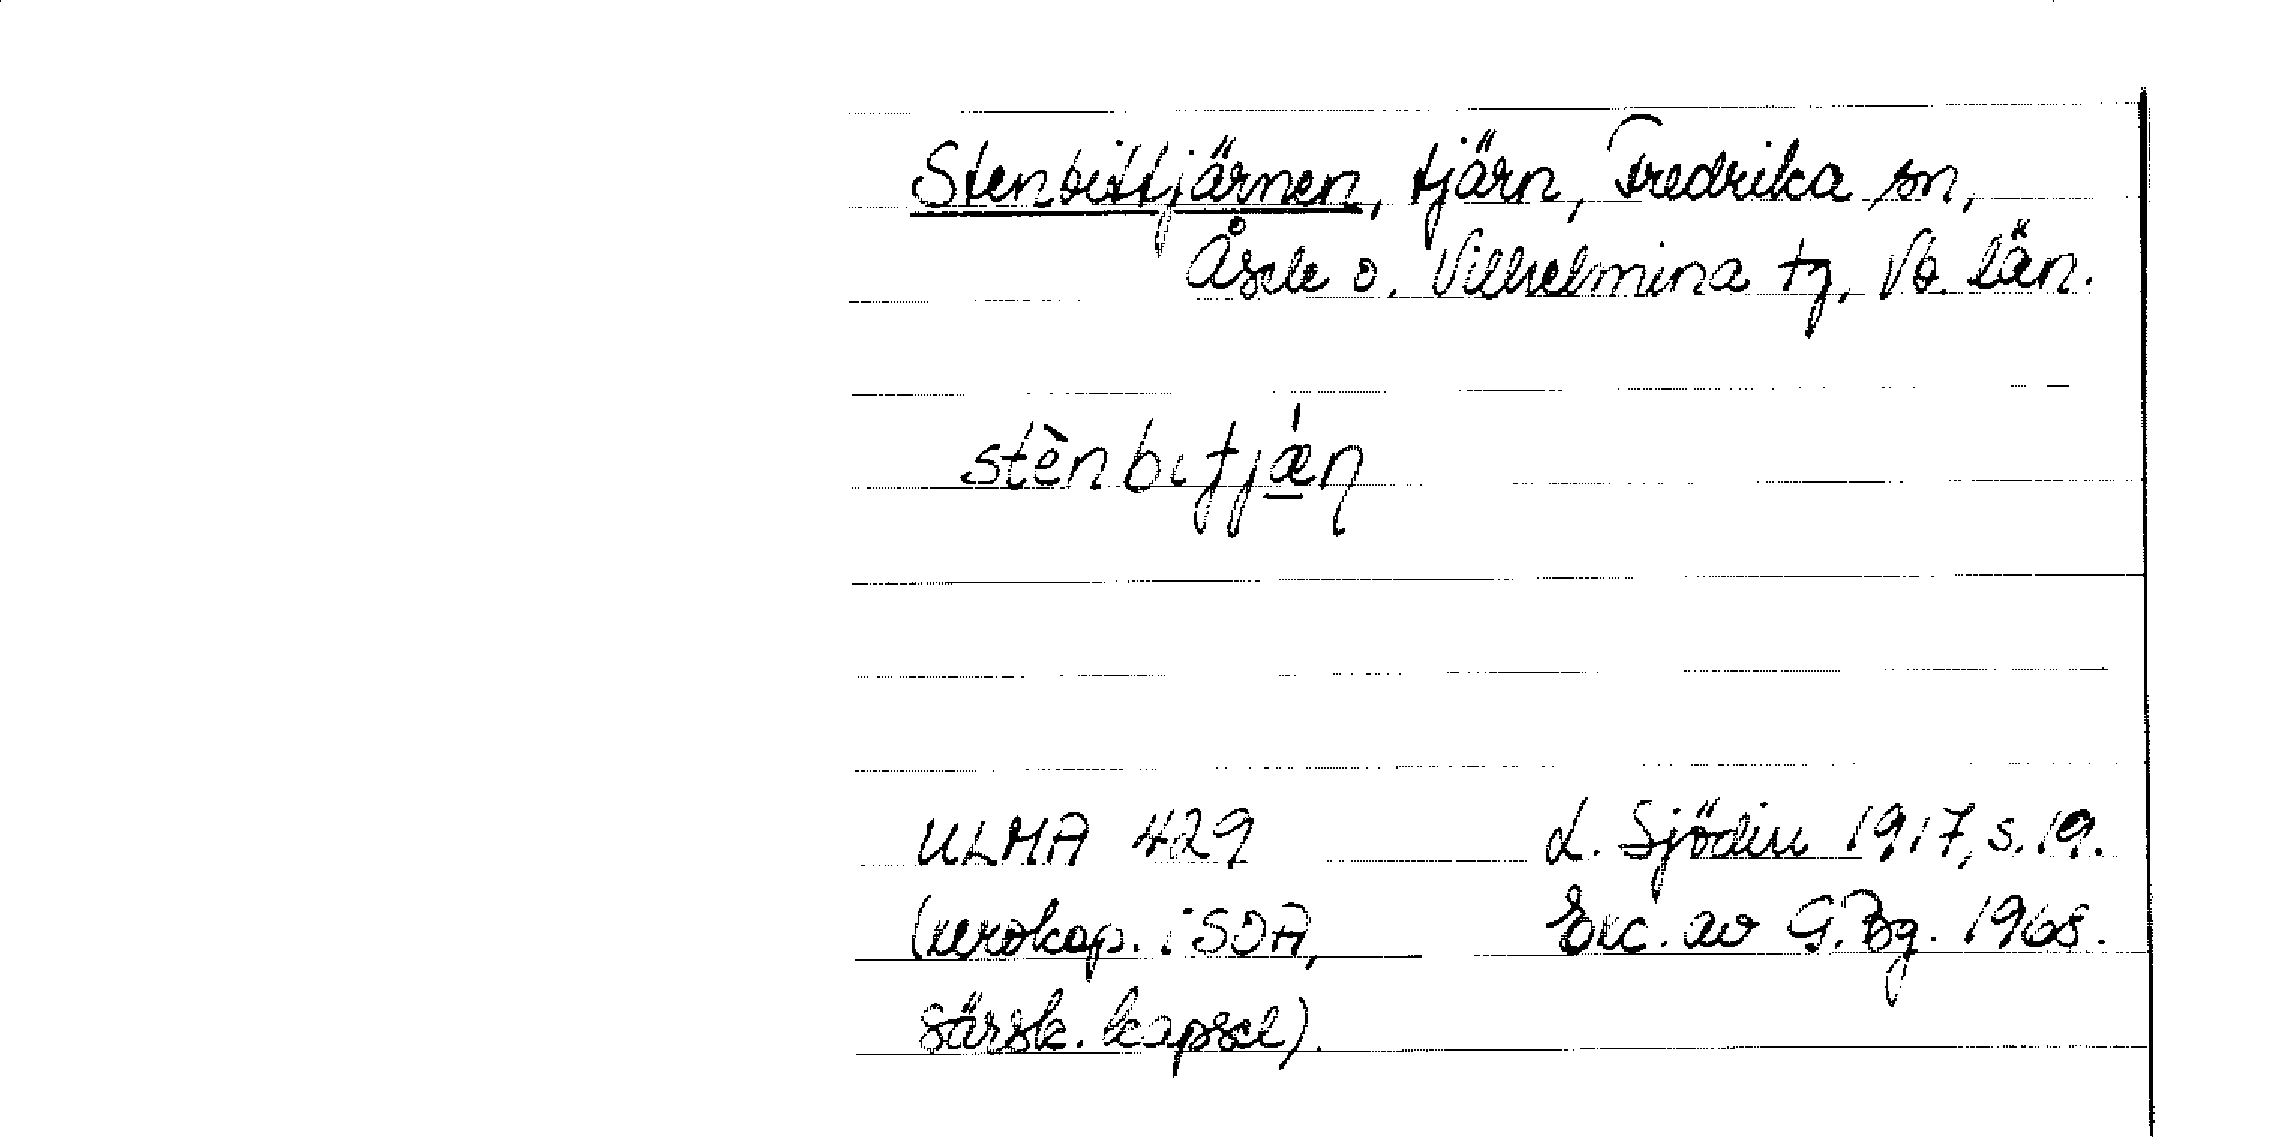 Stenbittjärnen, tjärn, Fredrika sn,
Åsele o. Vilhelmina tg, Vb. län.
stènbitjǽn
ULMA 429
(xerokop. i SOA,
särsk. kapsel).
L. Sjödin 1917, s. 19.
Exc. av G. Bg. 1968.